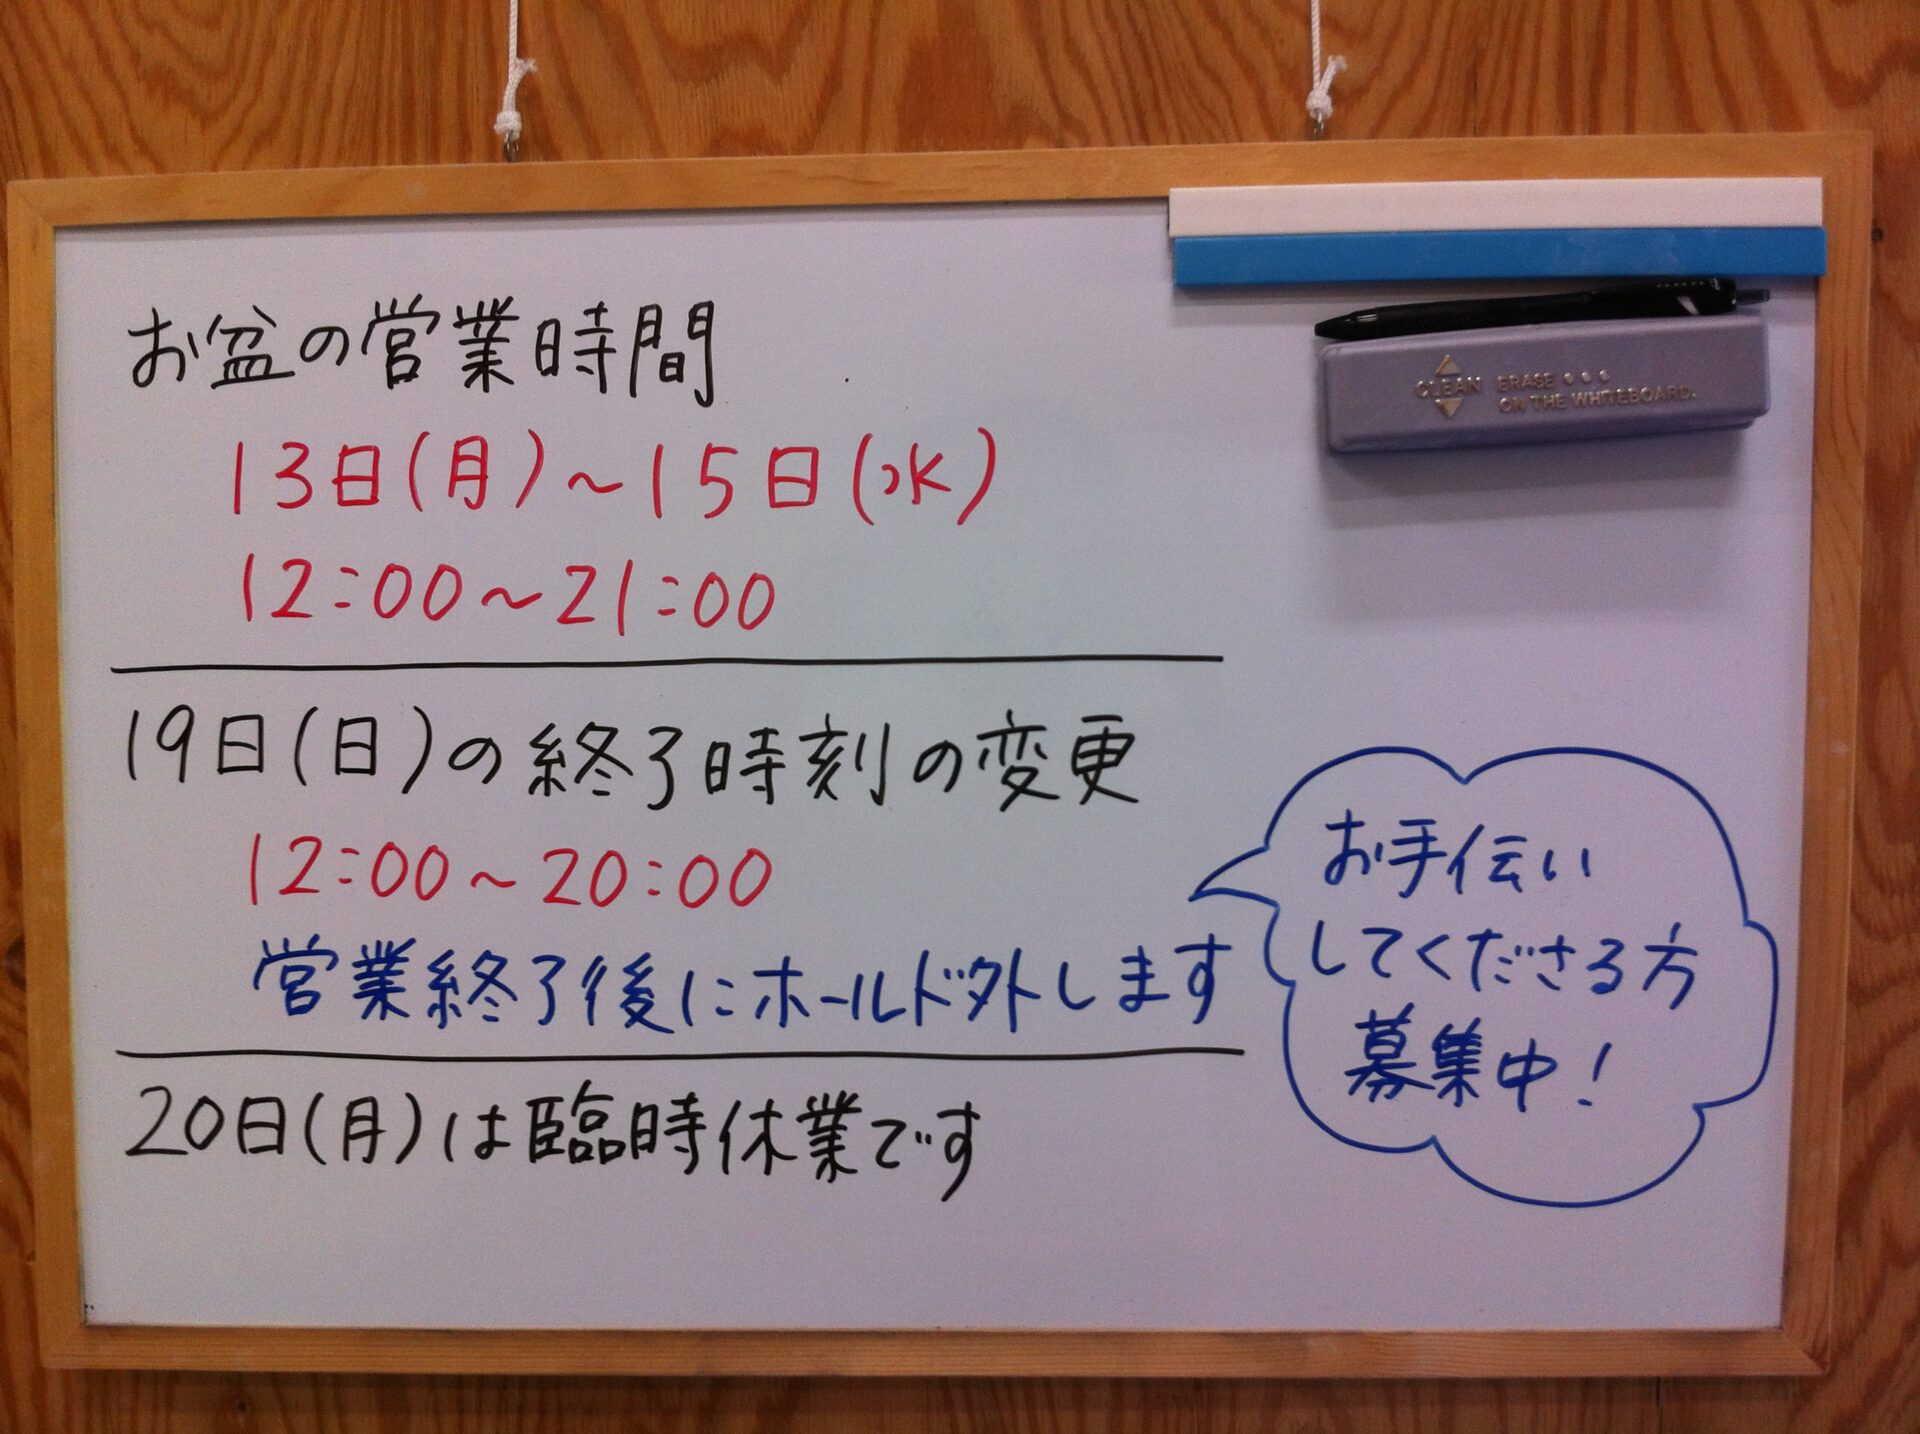 お盆の営業時間
13日(月)～15日(水)
12:00～21:00
19日(日)の終了時刻の変更
12:00～20:00
営業終了後にホールド外します
20日(月)は臨時休業です
お手伝い
してくださる方
募集中!
CLEAN ERASE
ON THE WHITEBOARD.